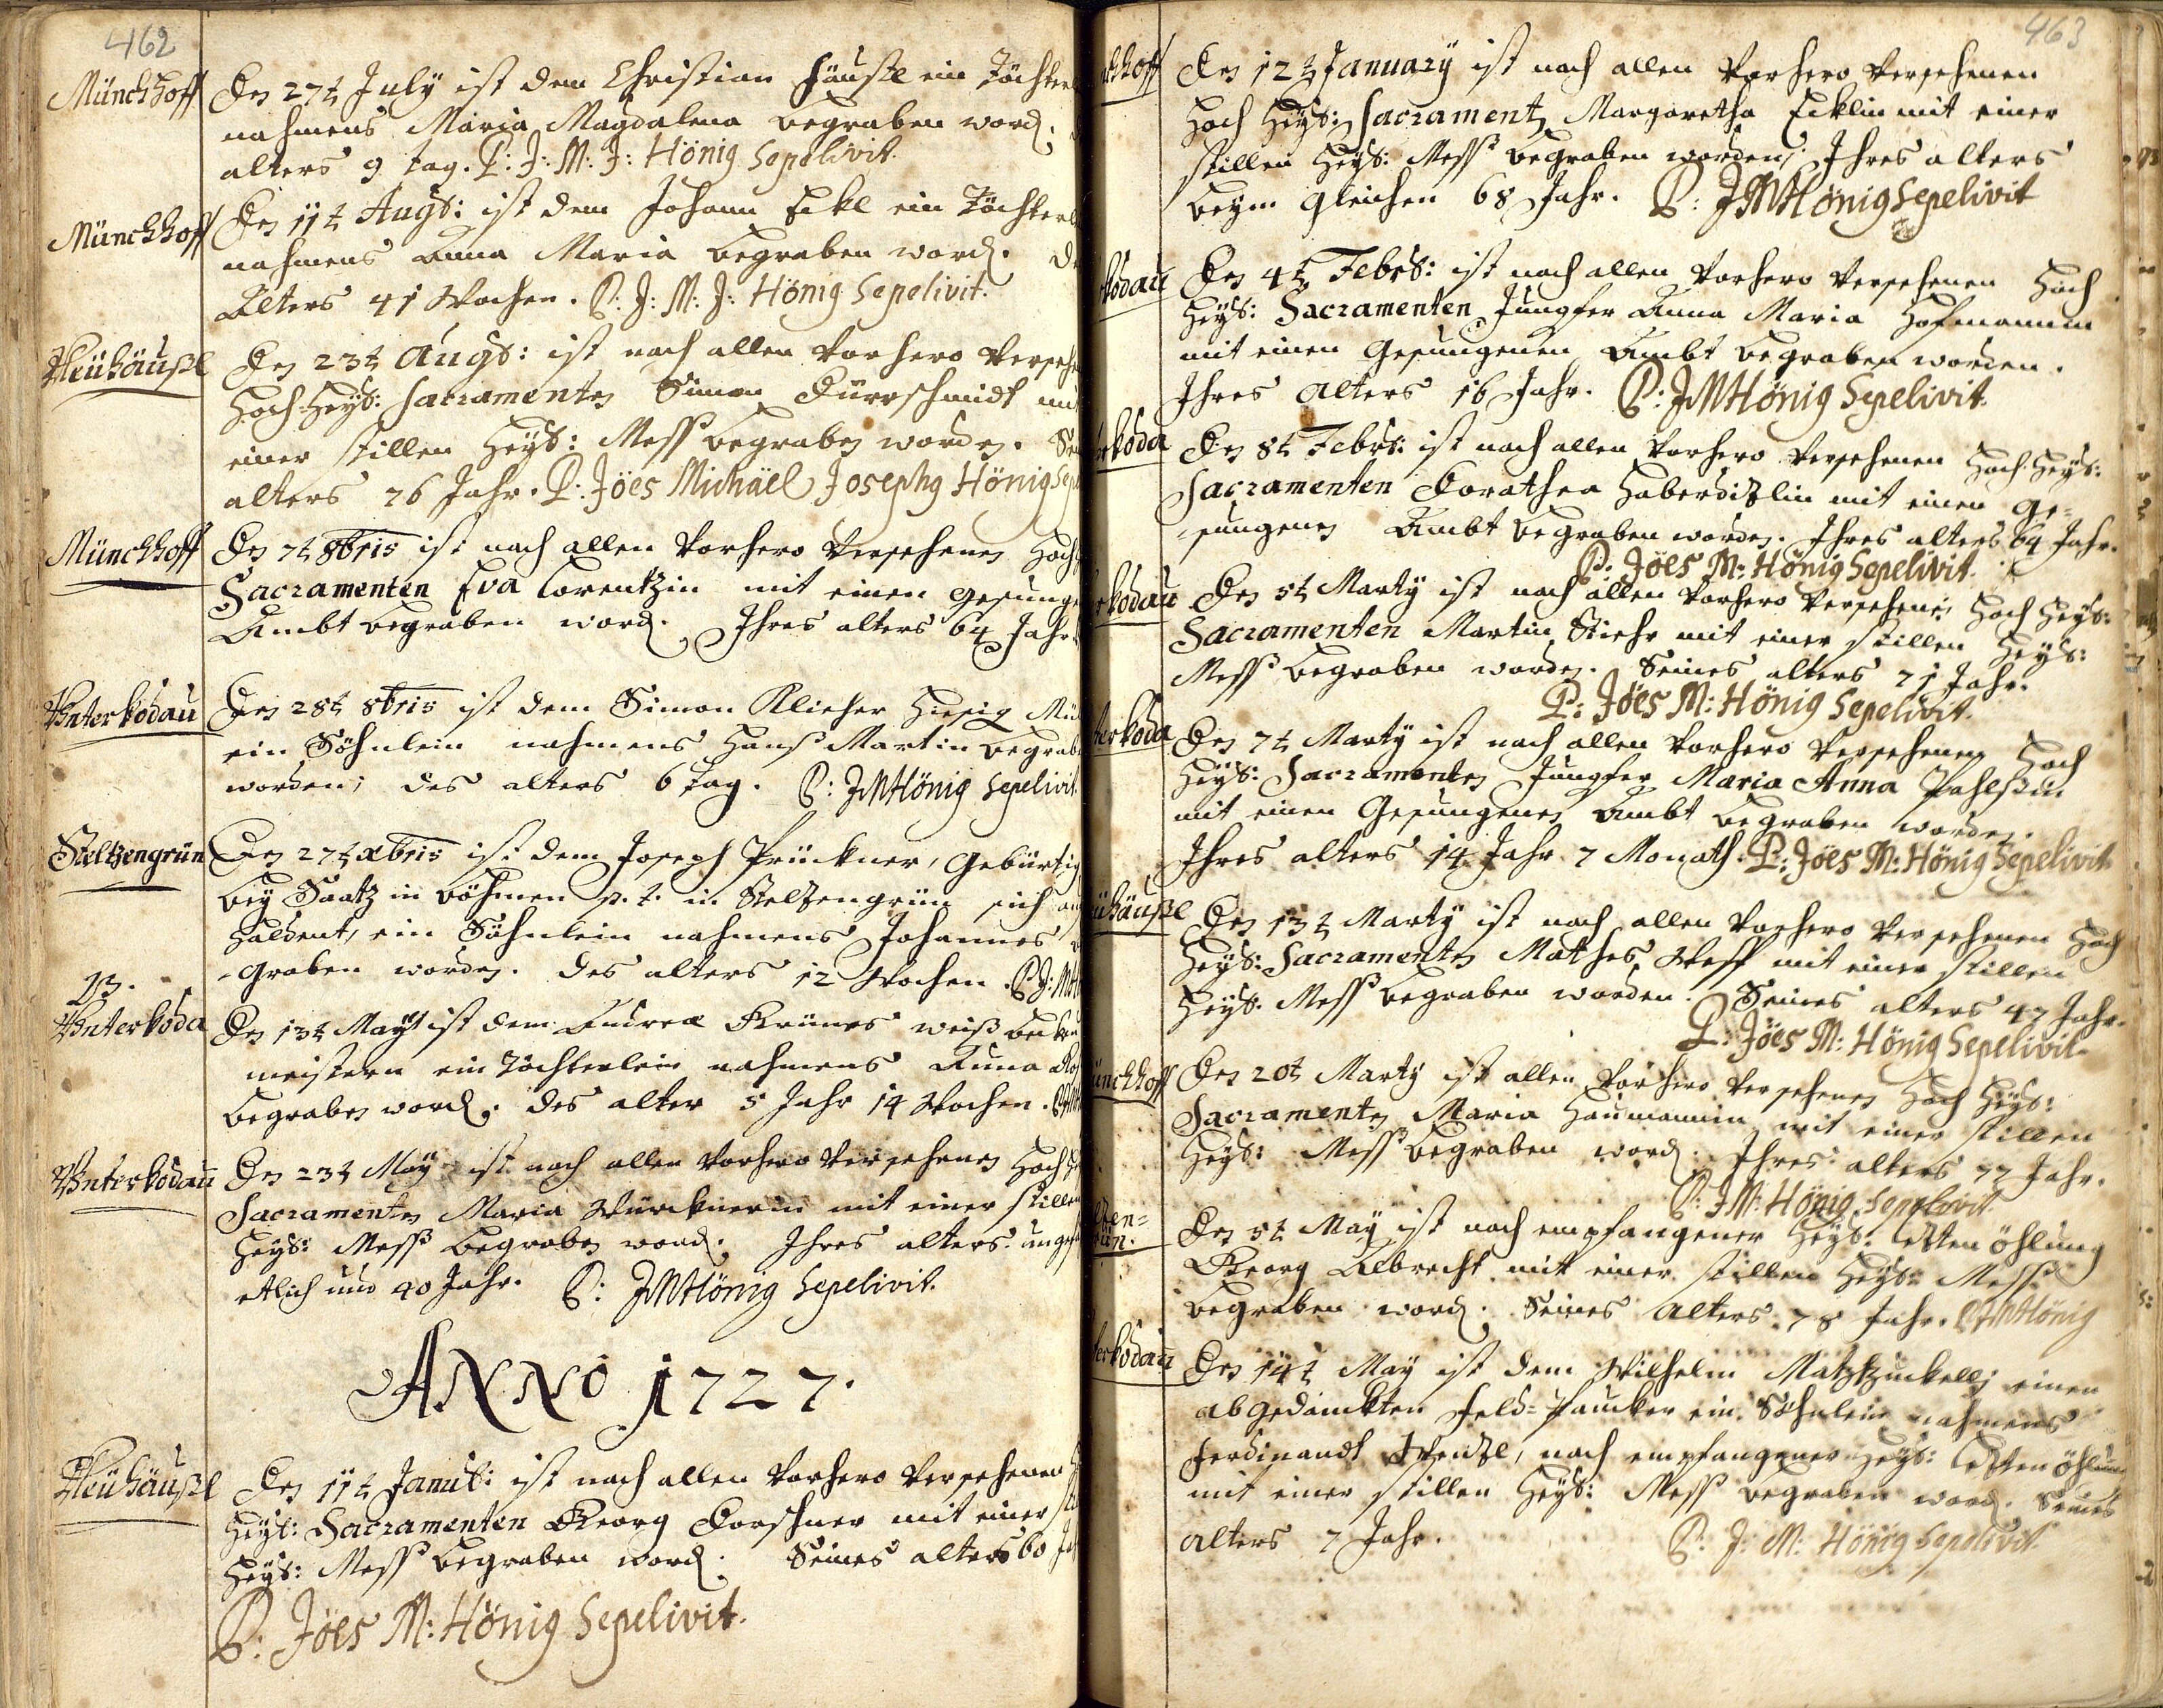 462
Münchhoff
Den 27t July ist dem Christian Häußl ein Töchterl
nahmens Maria Magdalena begraben word.
alters 9 tag. P: J: M: J: Hönig Sepelivit.
Münchhoff
Den 11t Augs: ist dem Johann Eckl ein Töchterl
nahmens Anna Maria begraben word.
Alters 41 Wochen. P: J: M: J: Hönig Sepelivit.
Neühäußl
Den 23t Augs: ist nach allen vorhero versehe
Hoch Heyl: Sacramenten Simon Dürrschmidt mit
einer stillen Heyl: Mess begraben worden.
alters 76 Jahr. P: Jöes Michäel Josephg Hönig Sep
Münchhoff
Den 7t 8bris ist nach allen vorhero versehenen Hoch
Sacramenten Eva Lorentzin mit einen gesunge
Ambt begraben word. Ihres alters 64 Jahr
Unterkodau
Den 28t 8bris ist dem Simon Klieher Hiesig Mül
ein Söhnlein nahmens Hans Martin begrabe
worden; des alters 6 tag. P: JMHönig Sepelivit.
Steltzengrün
Den 27t xbris ist dem Joseph Prückner, gebürtig
bey Saatz in Böhmen p. t. in Steltzengrün sich auf
haldent, ein Söhnlein nahmens Johannes
graben worden. des alters 12 Wochen. P: J: MH
Unterkoda
Den 13t May ist dem Andrea Krünes weiß becken
meistern ein Töchterlein nahmens Anna Ros
begraben word. des alter 5 Jahr 14 Wochen.
Unterkodau
Den 23t May ist nach allen vorhero versehenen Hoch
Sacramenten Maria Würcknerin mit einer stillen
Heyl: Mess begraben word. Ihres alters ungef
etlich und 40 Jahr. P: JMHönig Sepelivit.
ANNO 1727.
Neühäußl
Den 11t Janul: ist nach allen vorhero versehenen
Heyl: Sacramenten Georg Dorschner mit einer
Heyl: Mess begraben word. Seines alters 60
P: Jöes M: Hönig Sepelivit.
463
chhoff
Den 12t January ist nach allen vorhero versehenen
Hoch Heyl: Sacrament Margaretha Ecklin mit einer
stillen Heyl: Mess begraben worden; Ihres alters
beym gleichen 68 Jahr. P: JMHönig Sepelivit
kodau
Den 4t Febrs: ist nach allen vorhero versehenen Hoch
Heyl: Sacramenten Jungfer Anna Maria Hofmannin
mit einen gesungenen Ambt begraben worden.
Ihres alters 16 Jahr. P: JMHönig Sepelivit.
rkoda
Den 8t Febrs: ist nach allen vorhero versehenen Hoch Heyl:
Sacramenten Dorathea Haberditzlin mit einen ge=
sungenen Ambt begraben worden. Ihres alters 64 Jahr.
P: Jöes M: Hönig Sepelivit.
rkodau
Den 5t Marty ist nach allen vorhero versehenen Hoch Heyl:
Sacramenten Martin Stiehr mit einer stillen Heyl:
Mess begraben worden. Seines alters 71 Jahr.
P: Jöes M: Hönig Sepelivit.
terkoda
Den 7t Marty ist nach allen vorhero versehenen Hoch
Heyl: Sacramenten Jungfer Maria Anna Pahlßin
mit einen gesungenen Ambt begraben worden.
Ihres alters 14 Jahr 7 Monath. P: Jöes M: Hönig Sepelivit.
ühäußl
Den 13t Marty ist nach allen vorhero versehenen Hoch
Heyl: Sacramenten Mathes Wess mit einer stillen
Heyl: Mess begraben worden. Seines alters 47 Jahr.
P: Jöes M: Hönig Sepelivit.
ünchhoff
Den 20t Marty ist allen vorhero versehenen Hoch Heyl:
Sacramenten Maria Haumannin mit einer stillen
Heyl: Mess begraben word. Ihres alters 77 Jahr.
P: JM: Hönig Sepelivit.
Den 5t May ist nach empfangener Heyl: letzten öhlung
Georg Albrecht mit einer stillen Heyl: Mess
begraben word. Seines alters 78 Jahr. PJMHönig
terkodau
Den 14t May ist dem Wilhelm Matzkzuckelly einen
abgedanckten feld=Paucker ein Söhnlein nahmens
Ferdinandt Wentzl, nach empfangener Heyl: letzten öhlung
mit einer stillen Heyl: Mess begraben word. Seines
alters 7 Jahr. P: J: M: Hönig Sepelivit.